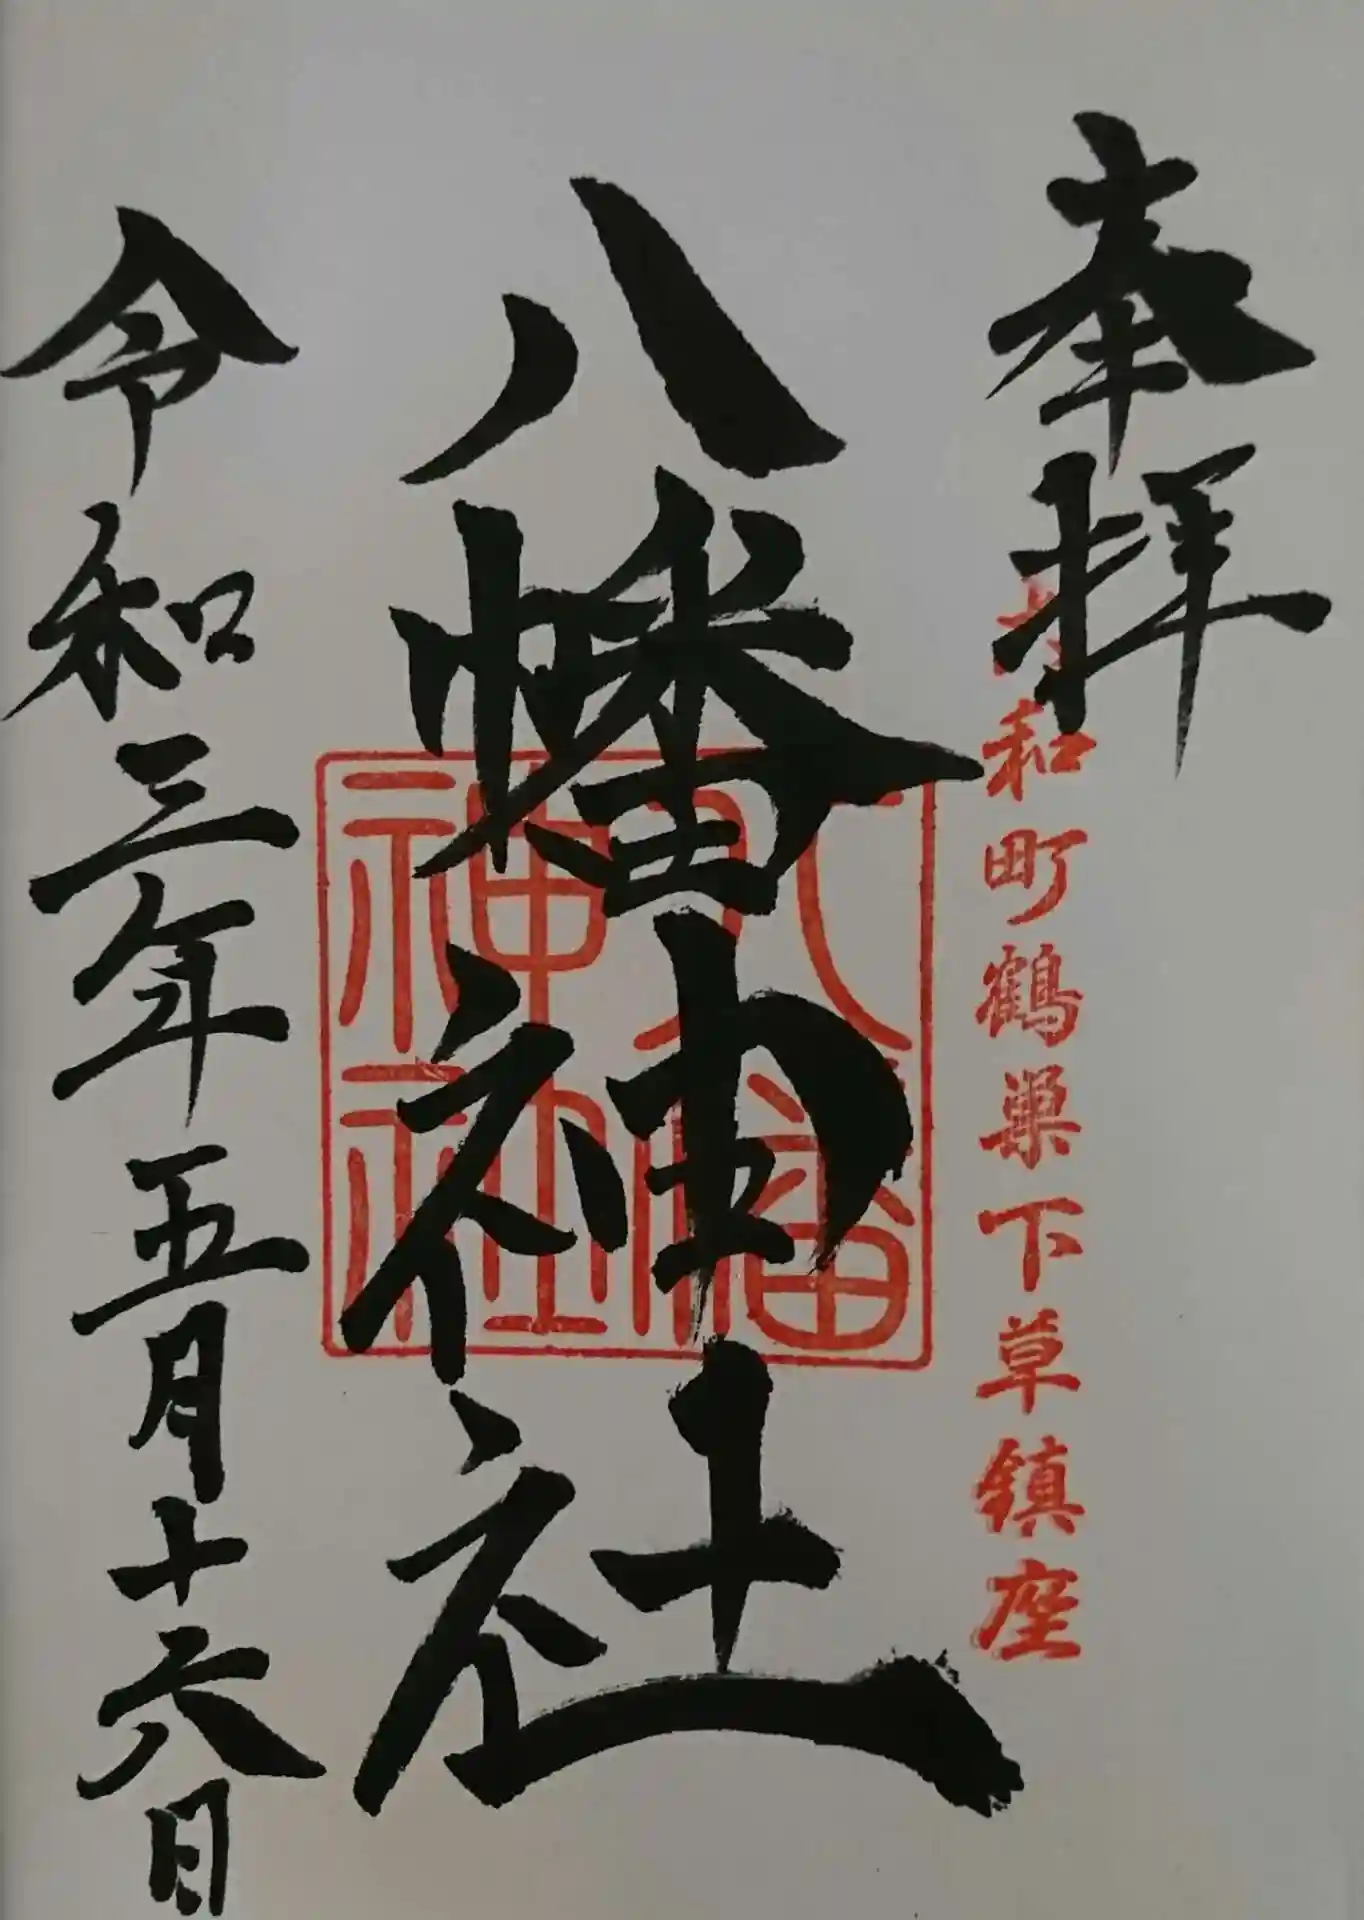 奉拝
大和町鶴巣下草鎮座
八幡神社
八幡
神社
令和三年五月十六日